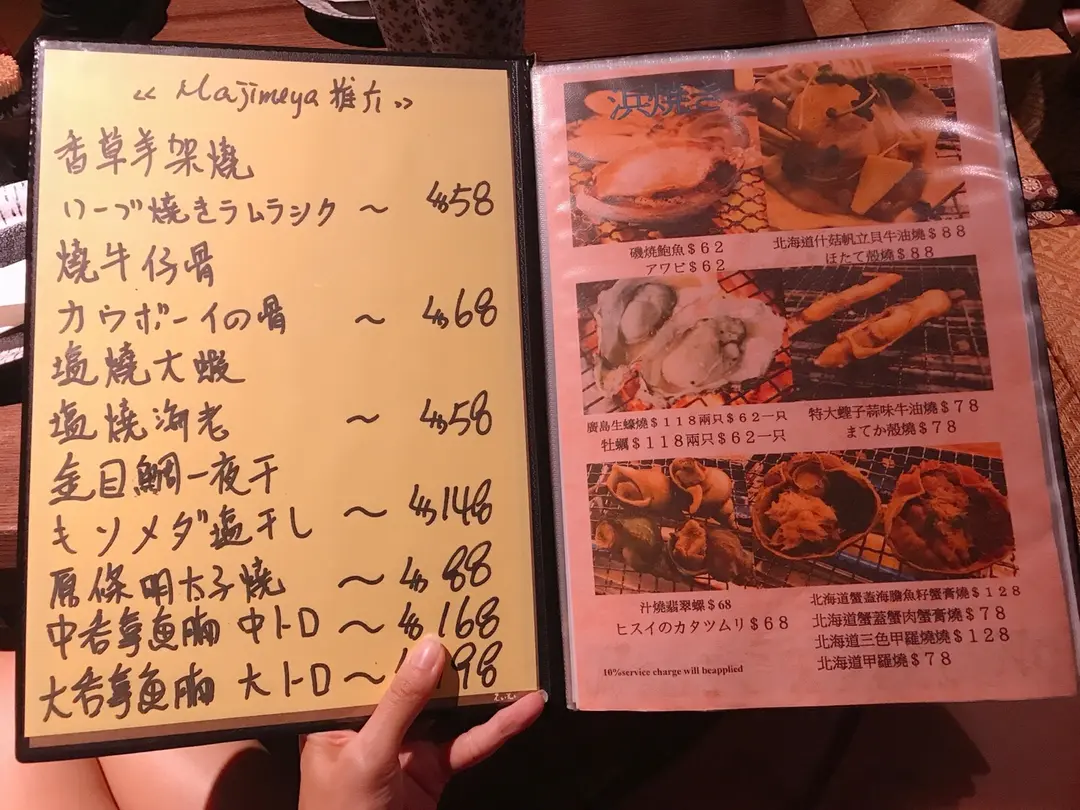 << Majimeya 推介 >>
香草羊架燒
ハーブ焼きラムラック ～ $58
燒牛仔骨
カウボーイの骨 ～ $68
塩燒大蝦
塩燒海老 ～ $58
金目鯛一夜干
キンメダ塩干し ～ $148
原條明太子燒 ～ $88
中吞拿魚腩 中トロ ～ $168
大吞拿魚腩 大トロ ～ 98
浜焼き
磯焼鮑魚＄６２
アワビ＄６２
北海道什菇帆立貝牛油燒＄８８
ほたて殻燒＄８８
廣島生蠔燒＄１１８兩只＄６２一只
牡蠣＄１１８兩只＄６２一只
特大蟶子蒜味牛油燒＄７８
まてか殻燒＄７８
汁燒翡翠螺＄68
ヒスイのカタツムリ＄６８
北海道蟹蓋海膽魚籽蟹膏燒＄１２８
北海道蟹蓋蟹肉蟹膏燒＄７８
北海道三色甲羅燒燒＄１２８
北海道甲羅燒＄７８
10%service charge will beapplied